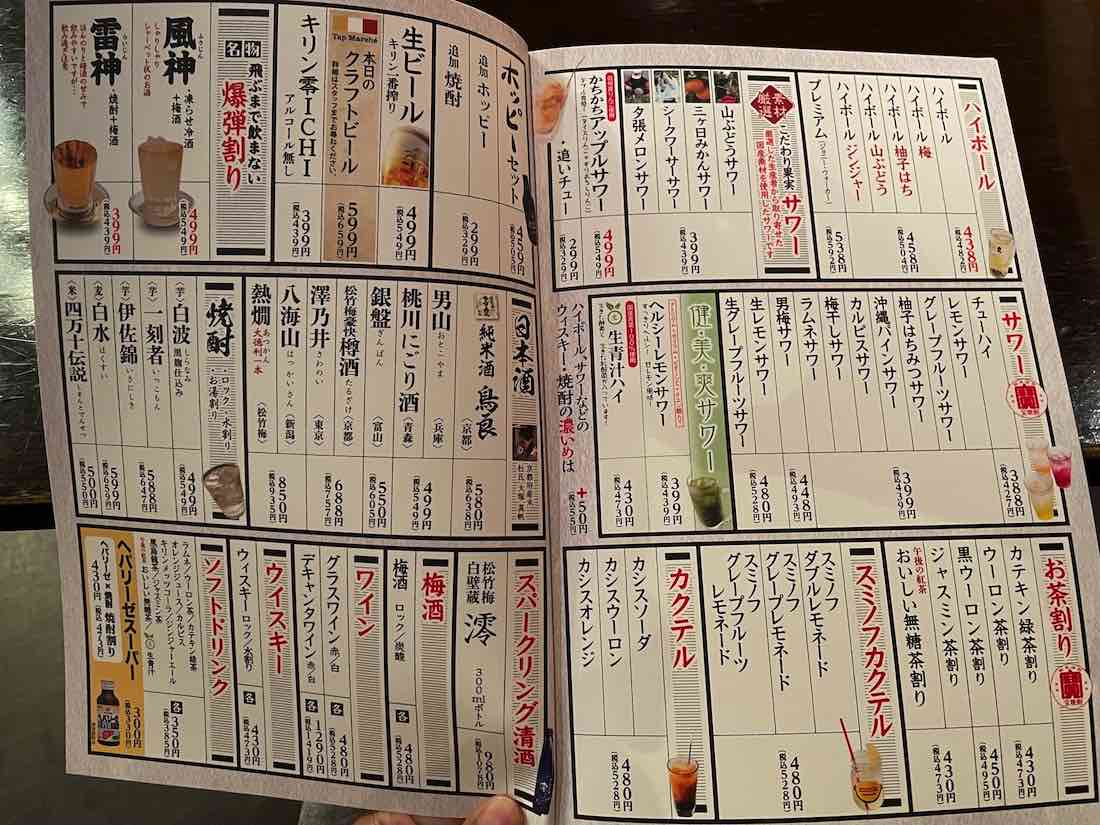 ハイボール
ハイボール
ハイボール 梅
ハイボール 柚子はち
ハイボール 山ぶどう
ハイボール ジンジャー
プレミアム(ジョニー・ウォーカー)
438円
458円
(税込504円)
538円
(税込592円)
厳選素材
こだわり果実サワー
厳選した生産者から取り寄せた
国産素材を使用したサワーです
山ぶどうサワー
三ヶ日みかんサワー
シークワーサーサワー
夕張メロンサワー
399円
(税込439円)
かちかちアップルサワー
499円
(税込549円)
・追いチュー
299円
(税込329円)
サワー
チューハイ
レモンサワー
グレープフルーツサワー
柚子はちみつサワー
沖縄パインサワー
カルピスサワー
梅干しサワー
ラムネサワー
男梅サワー
生レモンサワー
生グレープフルーツサワー
358円
399円
(税込439円)
448円
(税込493円)
480円
(税込528円)
健・美・爽サワー
ヘルシーレモンサワー
399円
(税込439円)
生青汁ハイ
430円
(税込473円)
ハイボール、サワーなどの
ウィスキー・焼酎の濃いめは
+50円
(税込55円)
お茶割り
カテキン緑茶割り
ウーロン茶割り
黒ウーロン茶割り
ジャスミン茶割り
午後の紅茶
おいしい無糖茶割り
430円
(税込473円)
450円
(税込495円)
430円
(税込473円)
スミノフカクテル
スミノフ
ダブルレモネード
スミノフ
グレープレモネード
スミノフ
グレープフルーツ
レモネード
480円
(税込528円)
カクテル
カシスソーダ
カシスウーロン
カシスオレンジ
480円
(税込528円)
ホッピーセット
追加 ホッピー
追加 焼酎
459円
(税込505円)
299円
(税込329円)
生ビール
キリン一番搾り
499円
(税込549円)
Tap Marché
本日の
クラフトビール
詳細はスタッフまでお尋ねください。
599円
(税込659円)
キリン零ICHI
アルコール無し
399円
(税込439円)
名物
飛ぶまで飲まない
爆弾割り
風神
ふうじん
・凍らせ冷酒
+梅酒
しゃりしゃり
シャーベット状のお酒
499円
(税込549円)
雷神
らいじん
・焼酎+梅酒
ほんのりと梅酒の甘みで
飲みやすいですが…
飲み過ぎ注意
399円
(税込439円)
日本酒
純米酒 鳥良
〈京都〉
580円
(税込638円)
男山
おとこやま
〈兵庫〉
499円
(税込549円)
桃川にごり酒
〈青森〉
銀盤
ぎんばん
〈富山〉
550円
(税込605円)
松竹梅豪快樽酒
たるざけ
〈京都〉
688円
(税込757円)
澤乃井
さわのい
〈東京〉
八海山
はっかいさん
〈新潟〉
850円
(税込935円)
熱燗
あつかん
大徳利一本
〈松竹梅〉
焼酎
・ロック・水割り
・お湯割り
〈芋〉白波
しらなみ
黒麹仕込み
499円
(税込549円)
〈芋〉一刻者
いっこもん
588円
(税込647円)
〈芋〉伊佐錦
いさにしき
599円
(税込659円)
〈麦〉白水
はくすい
500円
(税込550円)
〈米〉四万十伝説
しまんとでんせつ
スパークリング清酒
松竹梅
白壁蔵 澪
300mlボトル
980円
(税込1078円)
梅酒
梅酒 ロック/炭酸
各
480円
(税込528円)
ワイン
グラスワイン 赤/白
各
480円
(税込528円)
デキャンタワイン 赤/白
各
1290円
(税込1419円)
ウイスキー
ウィスキー ロック/水割り
各
430円
(税込473円)
ソフトドリンク
ラムネ/ウーロン茶/カテキン緑茶
オレンジジュース/カルピス
キリンメッツコーラ/ジンジャーエール
黒烏龍茶/ジャスミン茶
午後の紅茶 おいしい無糖茶/生青汁
各
350円
(税込385円)
ヘパリーゼスーパー
300円
(税込330円)
ヘパリーゼ×焼酎 焼酎割り
430円(税込473円)